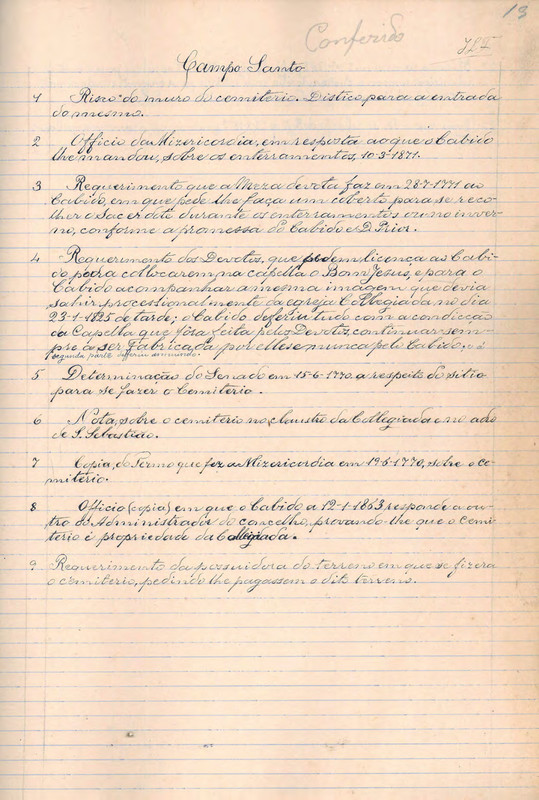 13
Conferido
Campo Santo
1 Risco do muro do cemiterio. Distico para a entrada
do mesmo.
2 Officio da Mizericordia, em resposta ao que o Cabido
lhe mandou, sobre os enterramentos, 10-3-1871.
3 Requerimento que a Meza devota faz em 28-7-1771 ao
Cabido, em que pede lhe faça um coberto para se reco-
lher o Sacerdote durante os enterramentos ou no inver-
no, conforme a promessa do Cabido e D. Prior.
4 Requerimento dos Devotos, que pedem licença ao Cabi-
do para collocarem na capella o Bom Jesus, e para o
Cabido acompanhar a mesma imagem que devia
sahir processionalmente da egreja Collegiada no dia
23-1-1825 de tarde; o Cabido deferiu tudo com a condicção
da Capella que fôra feita pelos Devotos, continuar sem-
pre a ser Fabricada por elles e nunca pelo Cabido, e á
segunda parte deferiu annuindo.
5 Determinação do Senado em 15-6-1770 a respeito do sitio
para se fazer o Cemiterio.
6 Nota, sobre o cemiterio no claustro da Collegiada e no adro
de S. Sebastião.
7 Copia, do Termo que fez a Mizericordia em 19-5-1770, sobre o ce-
miterio.
8 Officio (copia) em que o Cabido a 12-1-1863 responde a ou-
tro do Administrador do concelho, provando-lhe que o Cemi-
terio é propriedade da Collegiada.
9 Requerimento da possuidora do terreno em que se fizera
o cemiterio, pedindo lhe pagassem o dito terreno.